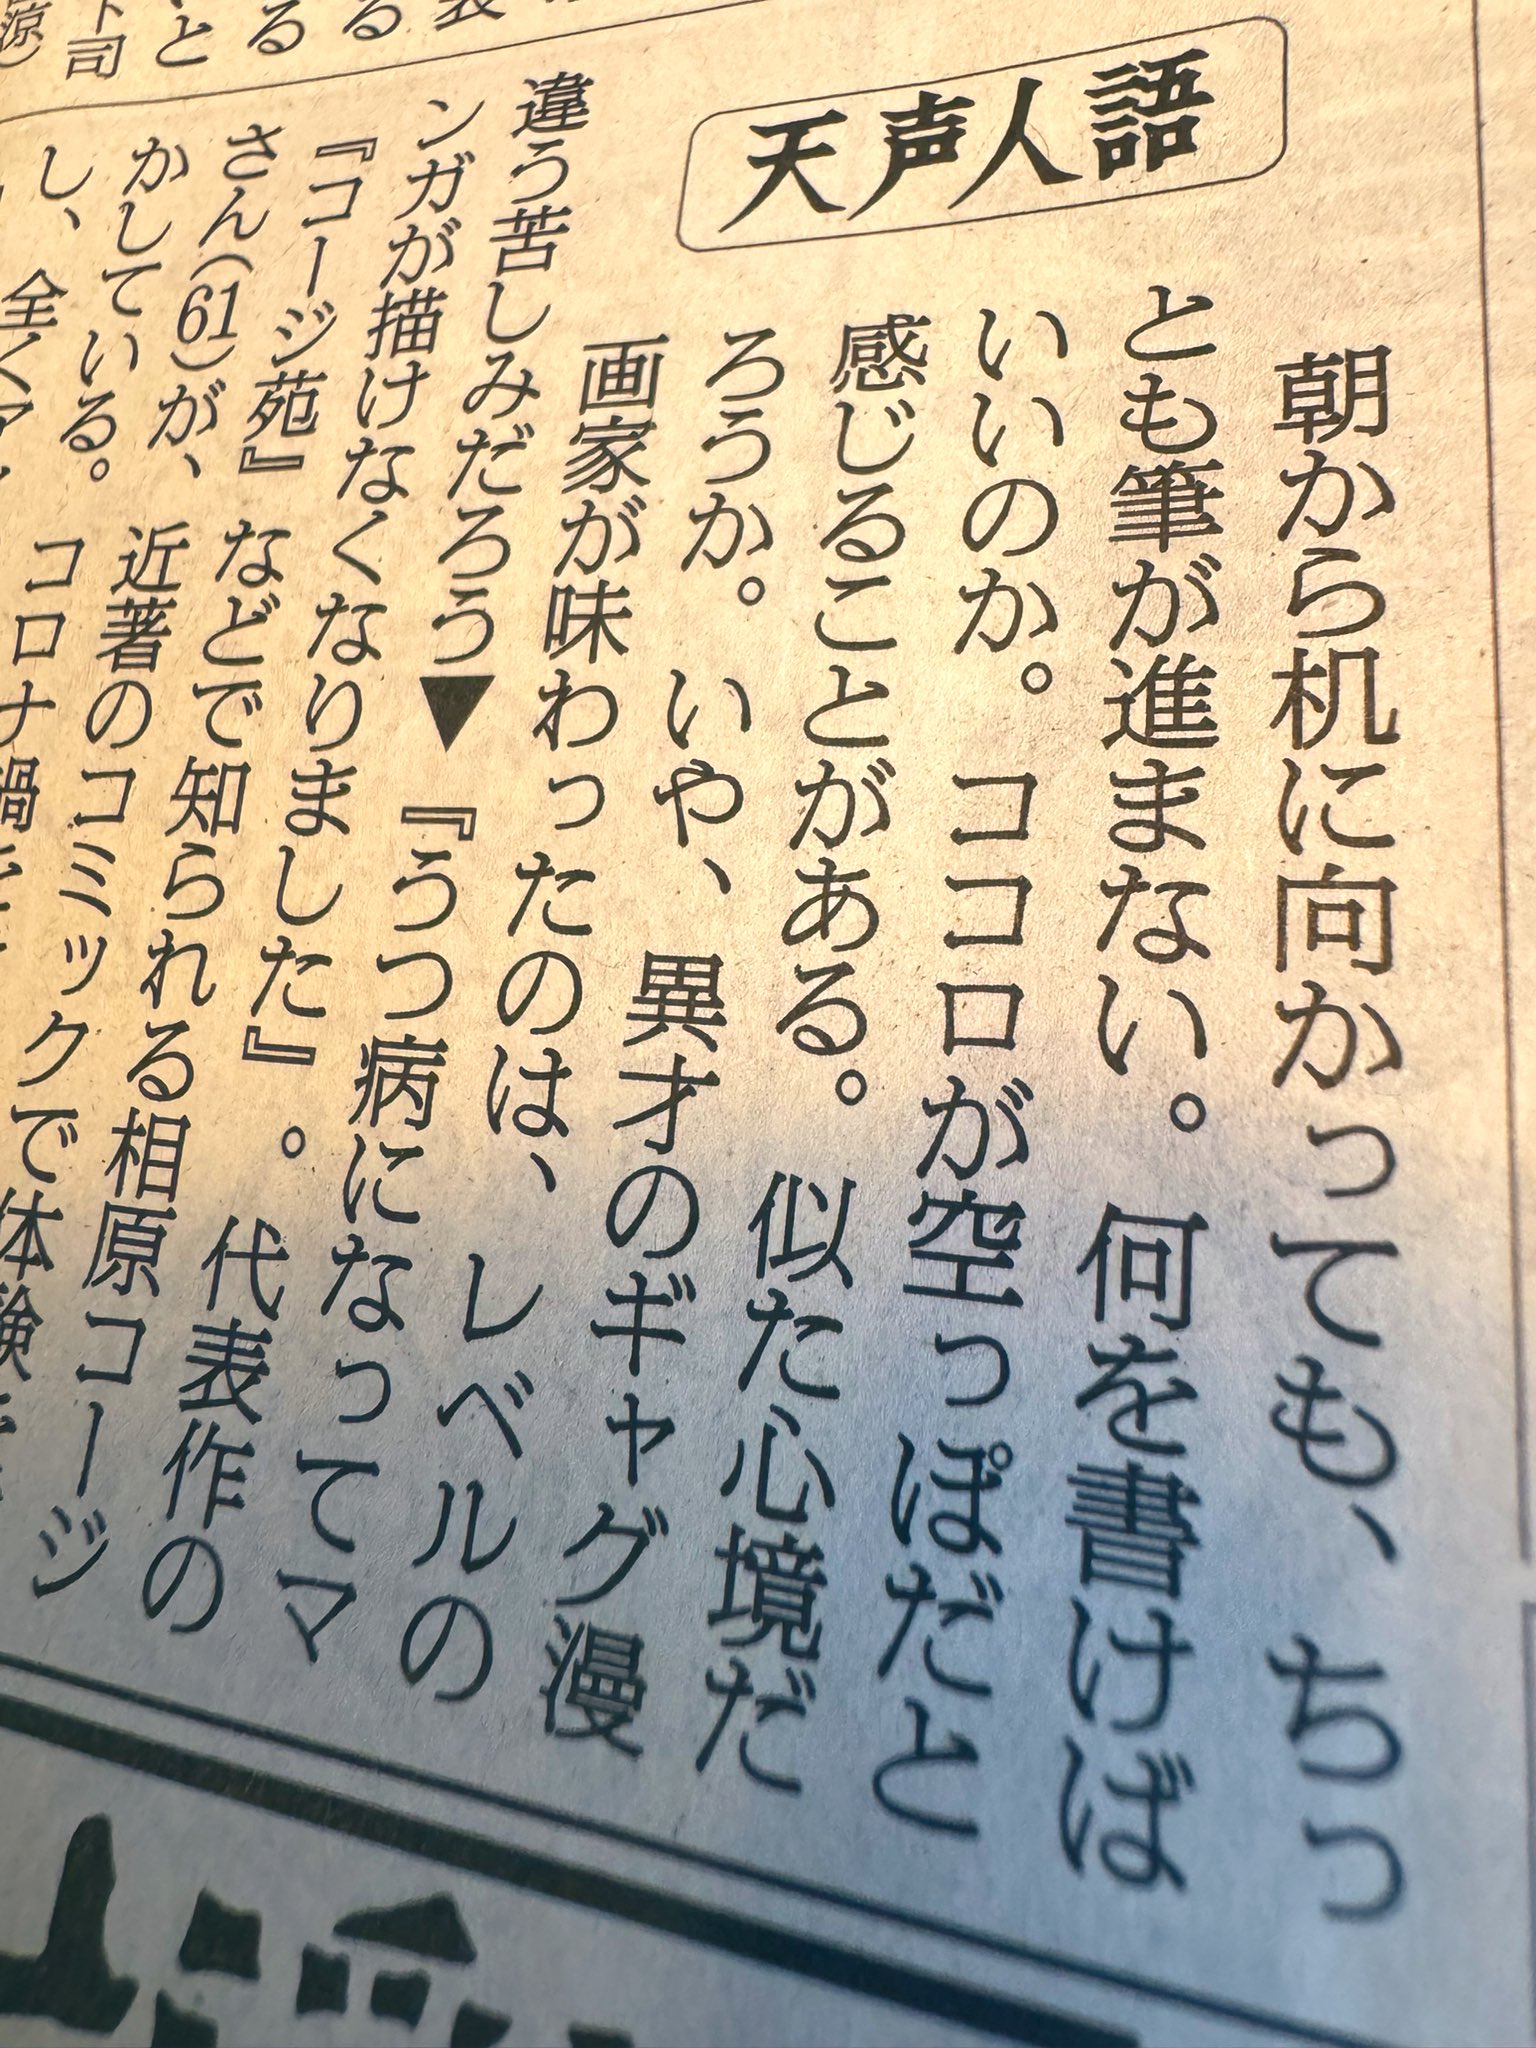 天声人語
朝から机に向かっても、ちっ
とも筆が進まない。何を書けば
いいのか。ココロが空っぽだと
感じることがある。似た心境だ
ろうか。いや、異才のギャグ漫
画家が味わったのは、レベルの
違う苦しみだろう▼『うつ病になってマ
ンガが描けなくなりました』。代表作の
『コージ苑』などで知られる相原コージ
さん(61)が、近著のコミックで体験
かしている。コロナ禍
し、全く